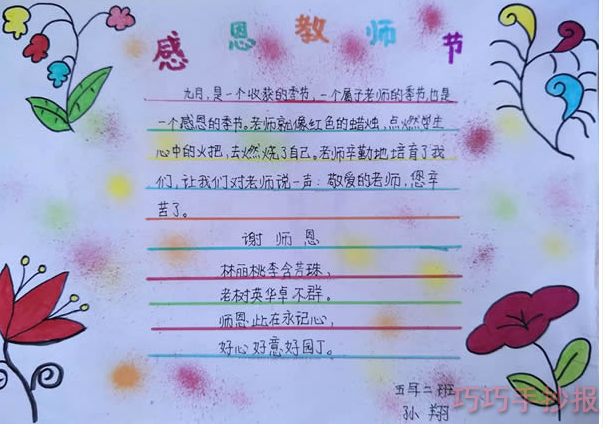 感恩教师节
九月,是一个收获的季节,一个属于老师的季节,也是
一个感恩的季节。老师就像红色的蜡烛,点燃学生
心中的火把,去燃烧了自己。老师辛勤地培育了我
们,让我们对老师说一声:敬爱的老师,您辛
苦了。
谢师恩
林丽桃李含芳珠,
老树英华卓不群。
师恩此在永记心,
好心好意好园丁。
五年二班
孙翔
巧巧手抄报